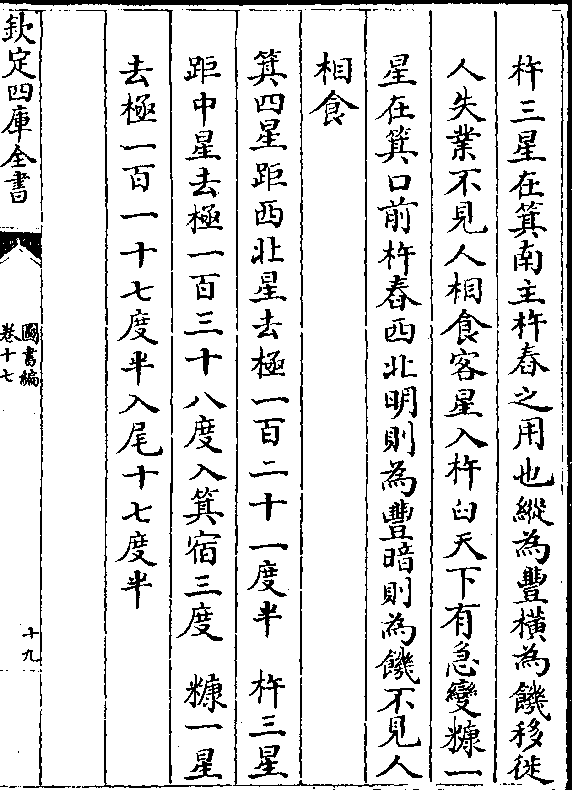 杵三星在箕南主杵舂之用也縱為豐橫為饑移徙
人失業不見人相食客星入杵臼天下有急變糠一
星在箕口前杵舂西北明則為豐暗則為饑不見人
相食
箕四星距西北星去極一百二十一度半　杵三星
距中星去極一百三十八度入箕宿三度　糠一星
去極一百一十七度半入尾十七度半
欽定四庫全書
圖書編
卷十七
十九